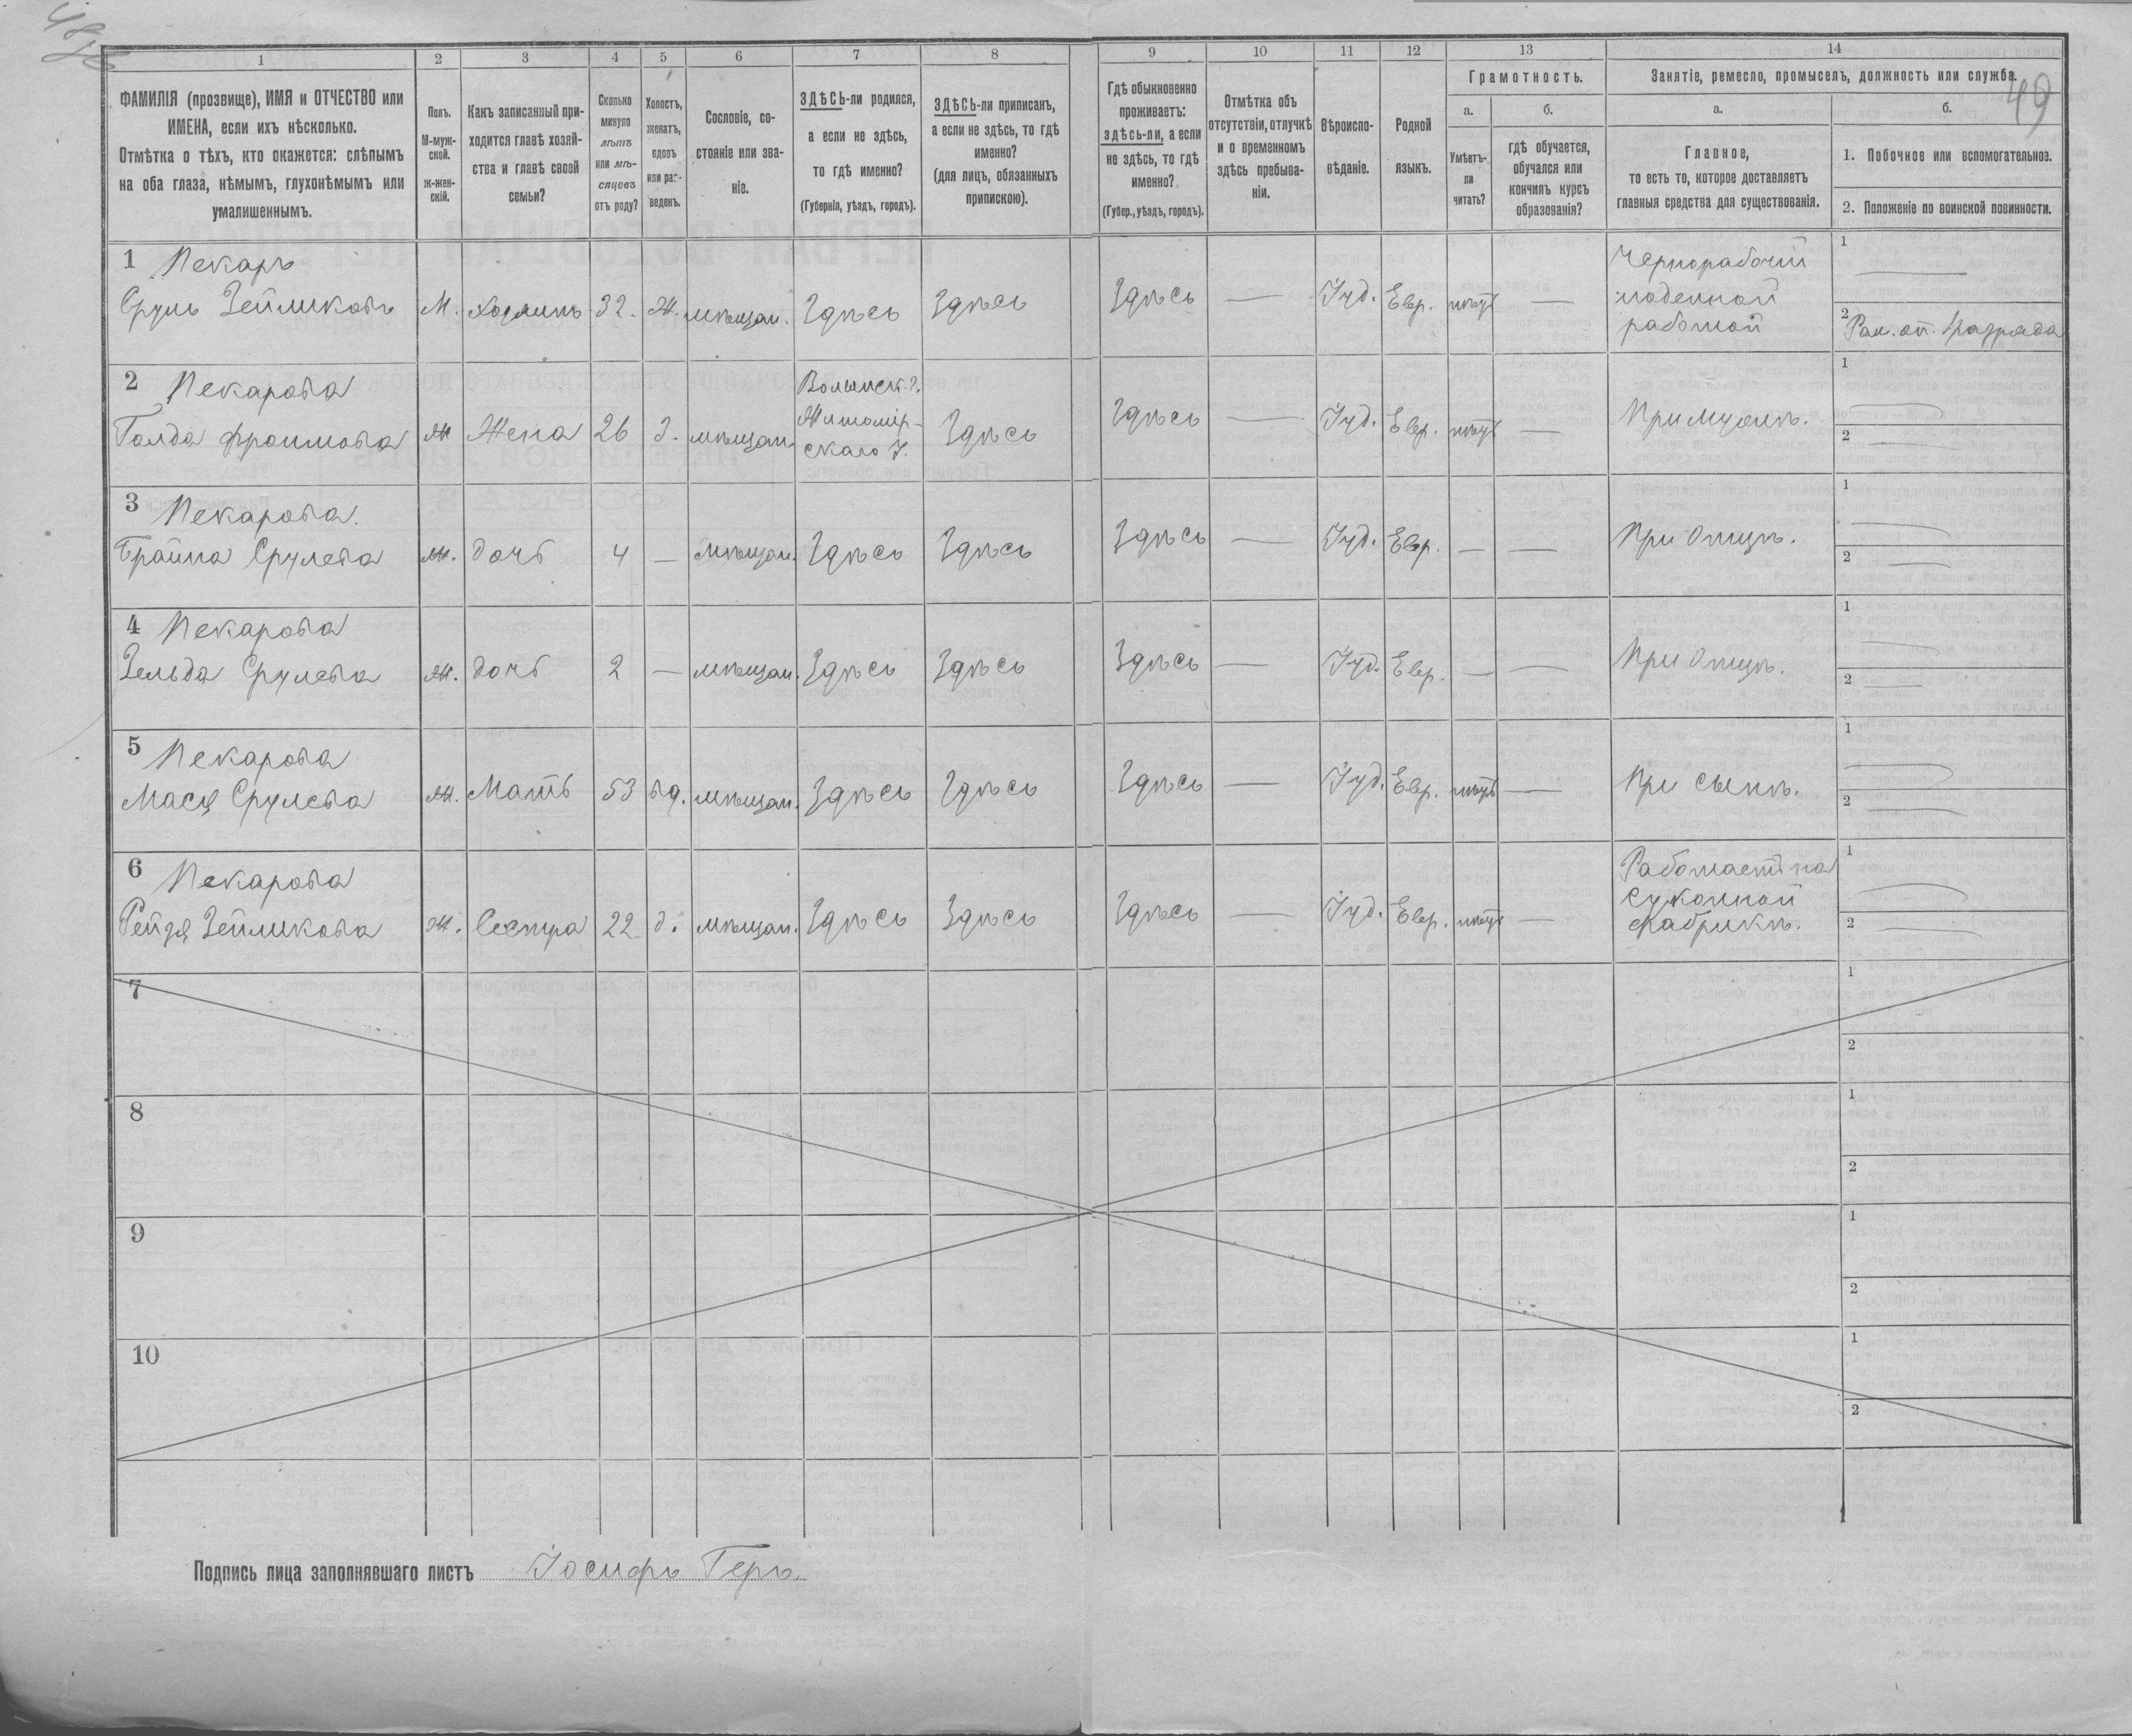 49
1 2 3 4 5 6 7 8 9 10 11 12 13 14
ФАМИЛІЯ (прозвище), ИМЯ и ОТЧЕСТВО или
ИМЕНА, если ихъ нѣсколько.
Отмѣтка о тѣхъ, кто окажется: слѣпымъ
на оба глаза, нѣмымъ, глухонѣмымъ или
умалишеннымъ.
Полъ.
М-муж-
ской.
Ж-жен-
скій.
Какъ записанный при-
ходится главѣ хозяй-
ства и главѣ своей
семьи?
Сколько
минуло
лѣтъ
или мѣ-
сяцевъ
отъ роду?
Холостъ,
женатъ,
вдовъ
или раз-
веденъ.
Сословіе, со-
стояніе или зва-
ніе.
ЗДѢСЬ-ли родился,
а если не здѣсь,
то гдѣ именно?
(Губернія, уѣздъ, городъ).
ЗДѢСЬ-ли приписанъ,
а если не здѣсь, то гдѣ
именно?
(для лицъ, обязанныхъ
припискою).
Гдѣ обыкновенно
проживаетъ:
здѣсь-ли, а если
не здѣсь, то гдѣ
именно?
(Губер., уѣздъ, городъ).
Отмѣтка объ
отсутствіи, отлучкѣ
и о временномъ
здѣсь пребыва-
ніи.
Вѣроиспо-
вѣданіе.
Родной
языкъ.
Грамотность.
а.
Умѣетъ-
ли
читать?
б.
гдѣ обучается,
обучался или
кончилъ курсъ
образованія?
Занятіе, ремесло, промыселъ, должность или служба.
а.
Главное,
то есть то, которое доставляетъ
главныя средства для существованія.
б.
1. Побочное или вспомогательное.
2. Положеніе по воинской повинности.
1 Пекаръ
Сруль Зейликовъ М. Хозяинъ 32. Ж. мѣщан. Здѣсь Здѣсь Здѣсь — Іуд. Евр. нѣтъ —
Чернорабочій
поденной
работой
1 —
2 Рат. оп. 1 разряда
2 Пекарова
Голда Фроимова Ж Жена 26 З. мѣщан.
Волынск. г.
Житомір-
скаго У.
Здѣсь Здѣсь — Іуд. Евр. нѣтъ — При мужѣ.
1 —
2 —
3 Пекарова.
Брайна Срулева Ж. дочь 4 — мѣщан. Здѣсь Здѣсь Здѣсь — Іуд. Евр. — — При отцѣ.
1 —
2 —
4 Пекарова
Зельда Срулева Ж. дочь 2 — мѣщан. Здѣсь Здѣсь Здѣсь — Іуд. Евр. — — При отцѣ.
1 —
2 —
5 Пекарова
Мася Срулева Ж. Мать 53 вд. мѣщан. Здѣсь Здѣсь Здѣсь — Іуд. Евр. нѣтъ — При сынѣ.
1 —
2 —
6 Пекарова
Рейзя Зейликова Ж. Сестра 22 д. мѣщан. Здѣсь Здѣсь Здѣсь — Іуд. Евр. нѣтъ —
Работаетъ на
суконной
фабрикѣ.
1 —
2 —
7
1
2
8
1
2
9
1
2
10
1
2
Подпись лица заполнявшаго листъ Іосифъ Геръ.